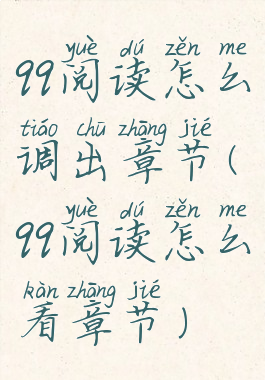 yuè dú zěn me
99阅读怎么
tiáo chū zhāng jié
调出章节(
yuè dú zěn me
99阅读怎么
kàn zhāng jié
看章节)